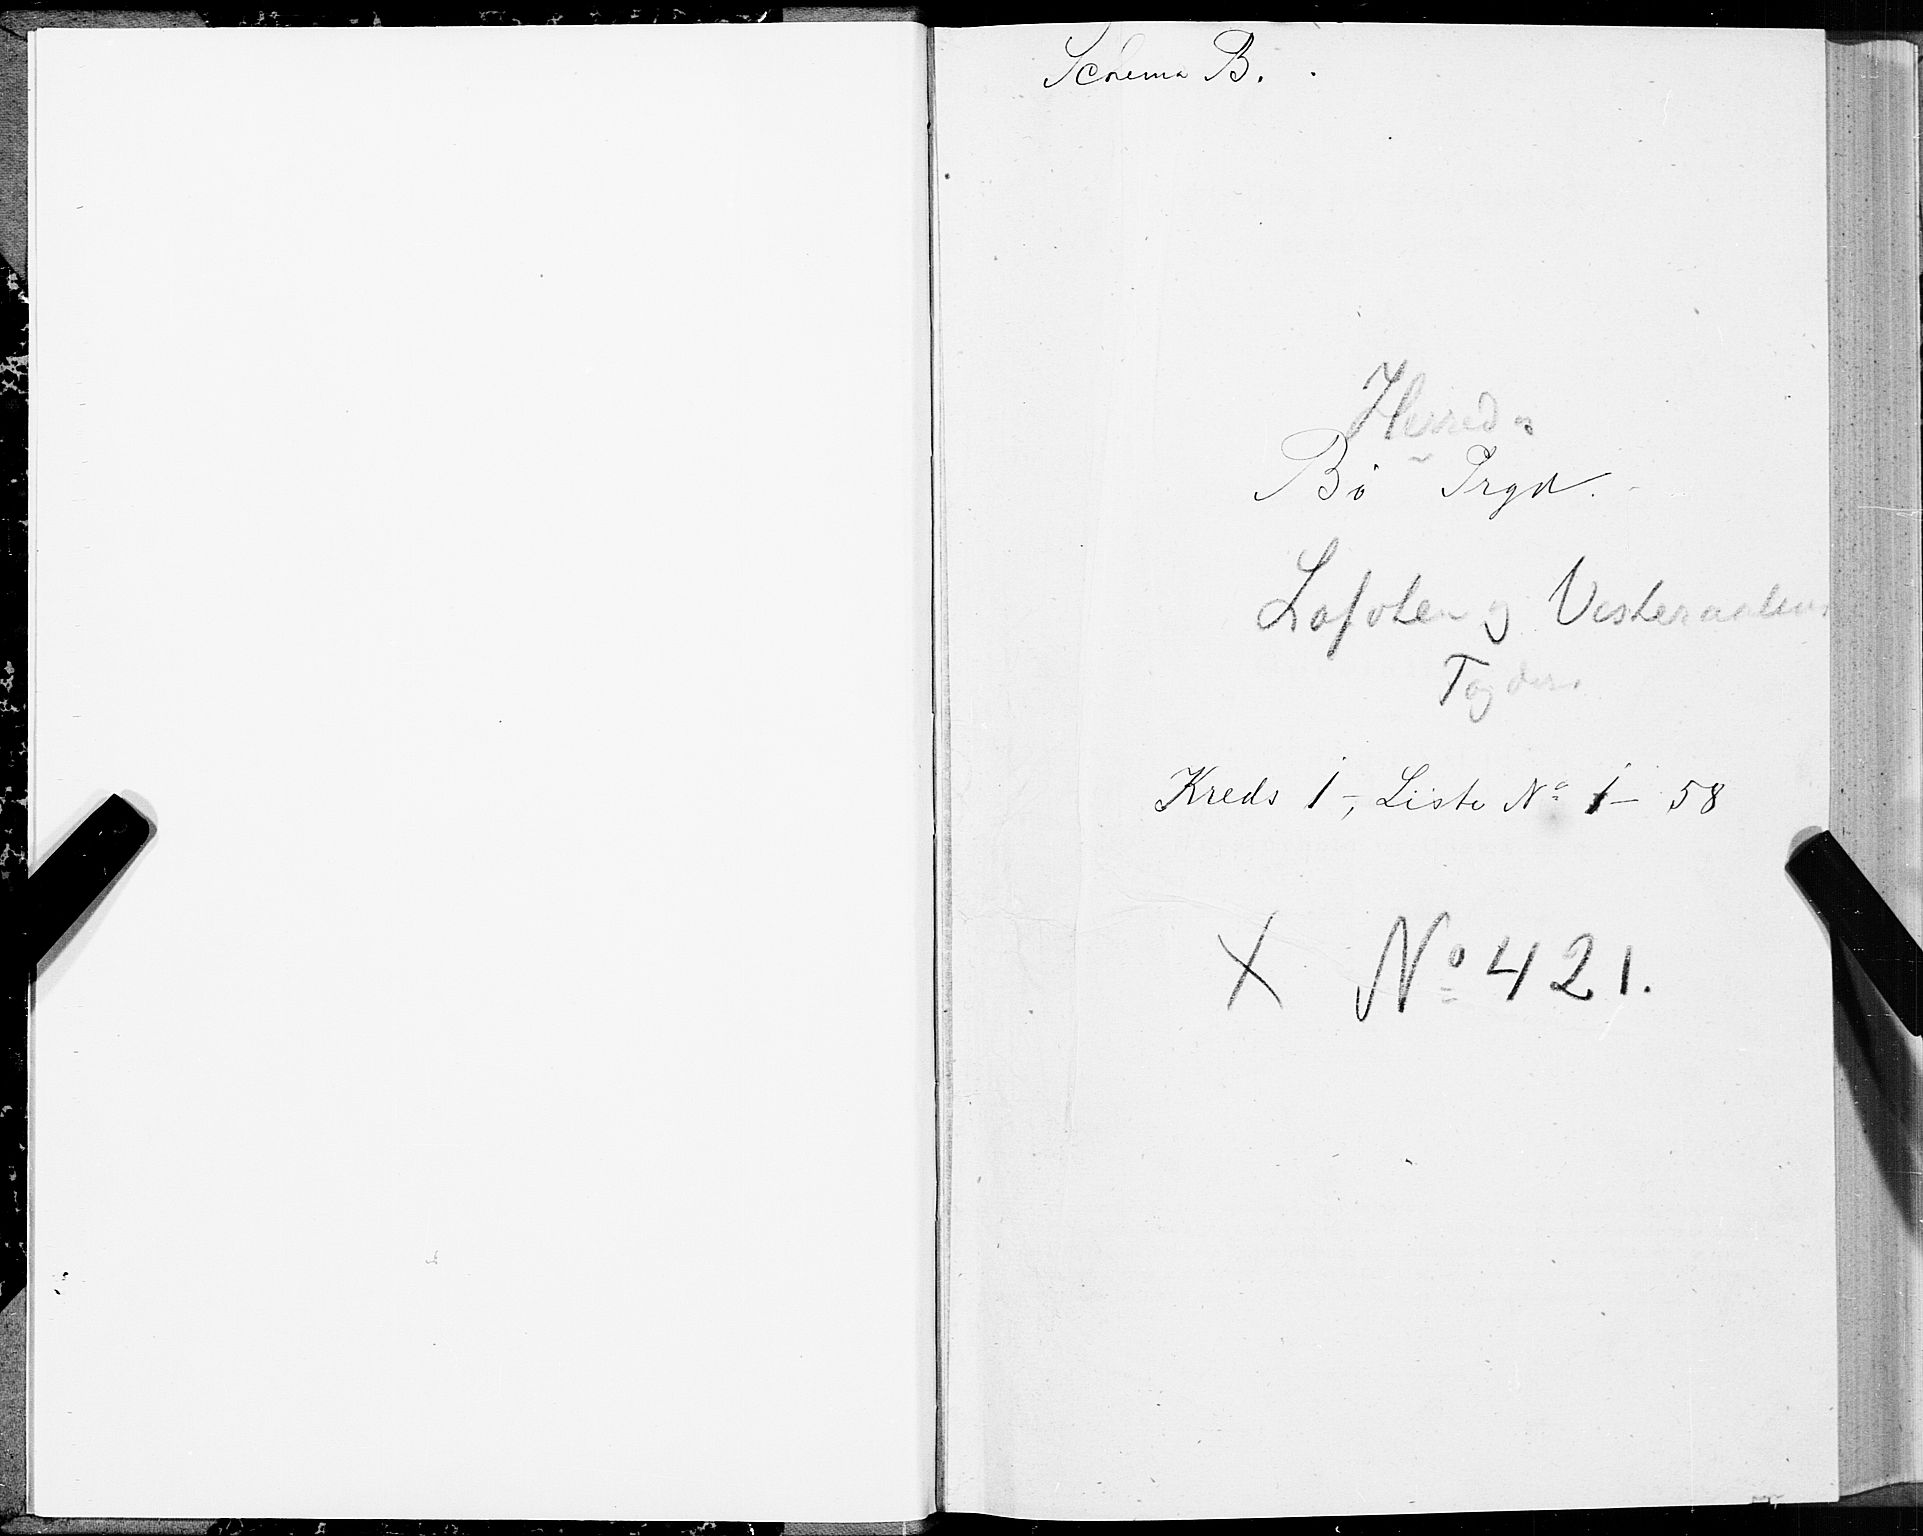 Schema B.
Herred
Bö Prgd.
Lofoten og Vesteraalens
Fogderi
Kreds 1-, Liste No 1- 58
X No 421.